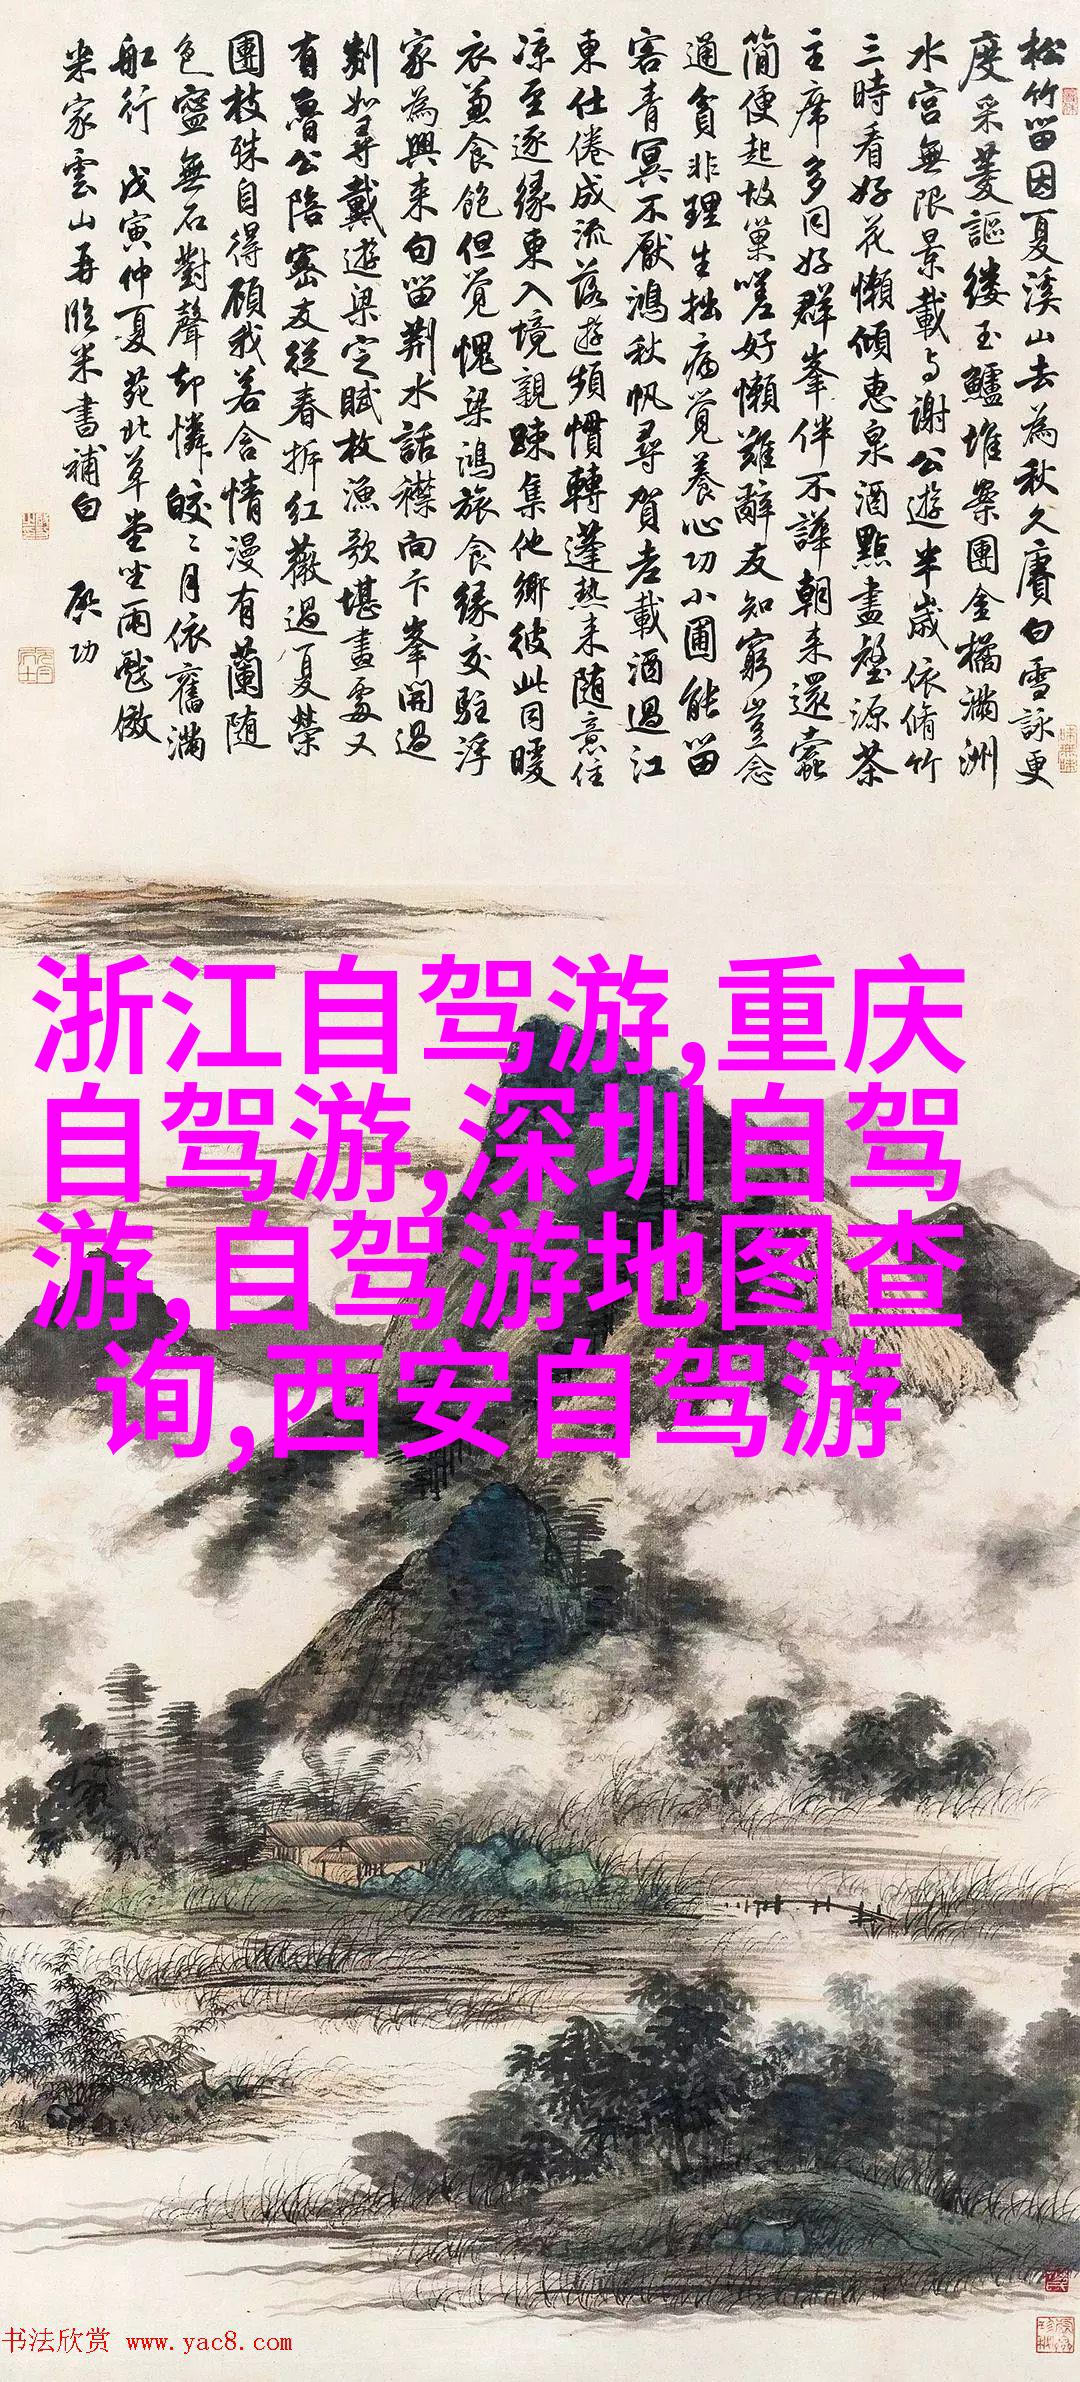 松竹留因夏溪山去為秋久賡白雪詠更
度采菱謳縷玉鱸堆案團金橘滿洲
水宮無限景載与謝公遊半歲依脩竹
三時看好花懶傾惠泉酒點盡壑源茶
主席多同好群峯伴不譁朝来還蠹
簡便起故巢嗟好懶難辭友知窮豈念
通貧非理生拙病覺養心功小圃能留
客青冥不厭鴻秋帆尋賀老載酒過江
東仕倦成流落遊頻慣轉蓬熱来随意住
凉至逐緣東入境親疎集他鄉彼此同暖
衣兼食飽但覺愧梁鴻旅食緣交駐浮
家為興来句留荆水話襟向卞峯開過
剡如尋戴遊梁定賦枚漁歌堪畫處又
有魯公陪密友從春拆紅薇過夏榮
團枝殊自得顧我若含情漫有蘭随
色寧無石對聲却憐皎〻月依舊滿
舡行 戊寅仲夏苑北草堂坐雨戲倣
米家雲山再臨米書補白 啟功
浙江自驾游,重庆
自驾游,深圳自驾
游,自驾游地图查
询,西安自驾游
书法欣赏 www.yac8.com